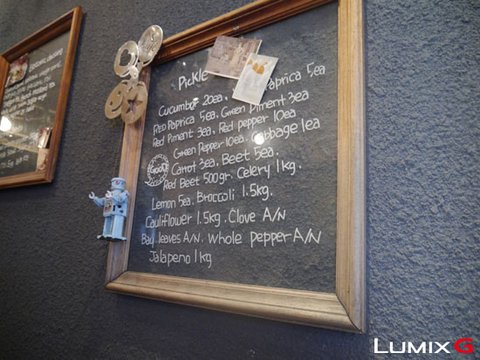 Pickle
Cucumber 20ea. Paprica 5ea
Red Paprica 5ea, Green Piment 3ea
Red Piment 3ea, Red pepper 10ea
Green Pepper 10ea. Cabbage 1ea
Carrot 3ea, Beet 5ea.
Red Beet 500gr, Celery 1kg.
Lemon 5ea, Broccoli 1.5kg.
Cauliflower 1.5kg, Clove A/N
Bay leaves A/N, Whole pepper A/N
Jalapeno 1kg
LUMIX G